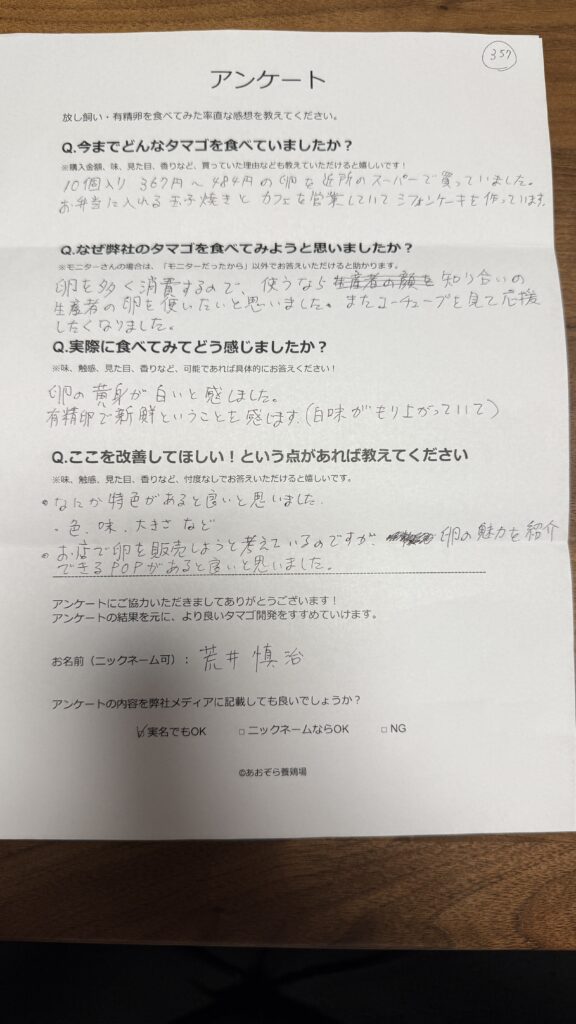 357
アンケート
放し飼い・有精卵を食べてみた率直な感想を教えてください。
Q.今までどんなタマゴを食べていましたか？
※購入金額、味、見た目、香りなど、買っていた理由なども教えていただけると嬉しいです！
10個入り 367円〜484円の卵を近所のスーパーで買っていました。
お弁当に入れる玉子焼きと カフェを営業していて シフォンケーキを作っています。
Q.なぜ弊社のタマゴを食べてみようと思いましたか？
※モニターさんの場合は、「モニターだったから」以外でお答えいただけると助かります。
卵を多く消費するので、使うなら 生産者の顔を 知り合いの
生産者の卵を使いたいと思いました。またユーチューブを見て応援
したくなりました。
Q.実際に食べてみてどう感じましたか？
※味、触感、見た目、香りなど、可能であれば具体的にお答えください！
卵の黄身が白いと感じました。
有精卵で新鮮ということを感じます。(白味がもり上がっていて)
Q.ここを改善してほしい！という点があれば教えてください
※味、触感、見た目、香りなど、忖度なしでお答えいただけると嬉しいです。
・なにか特色があると良いと思いました.
・色、味、大きさなど
・お店で卵を販売しようと考えているのですが、 卵の魅力を紹介
できるPOPがあると良いと思いました。
アンケートにご協力いただきましてありがとうございます！
アンケートの結果を元に、より良いタマゴ開発をすすめていけます。
お名前（ニックネーム可）： 荒井 慎治
アンケートの内容を弊社メディアに記載しても良いでしょうか？
☑実名でもOK □ニックネームならOK □NG
©あおぞら養鶏場